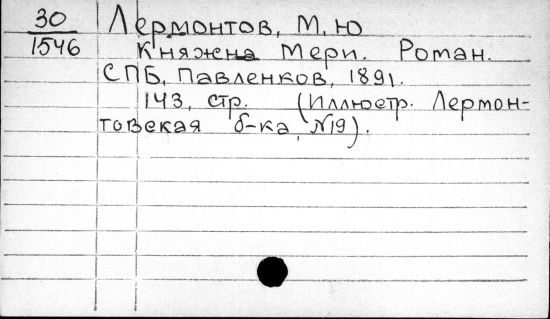 30
1546
Лермонтов, М. Ю
Княжна Мери. Роман.
СПБ, Павленков, 1891.
143, стр. (Иллюстр. Лермон-
товская б-ка, №19).